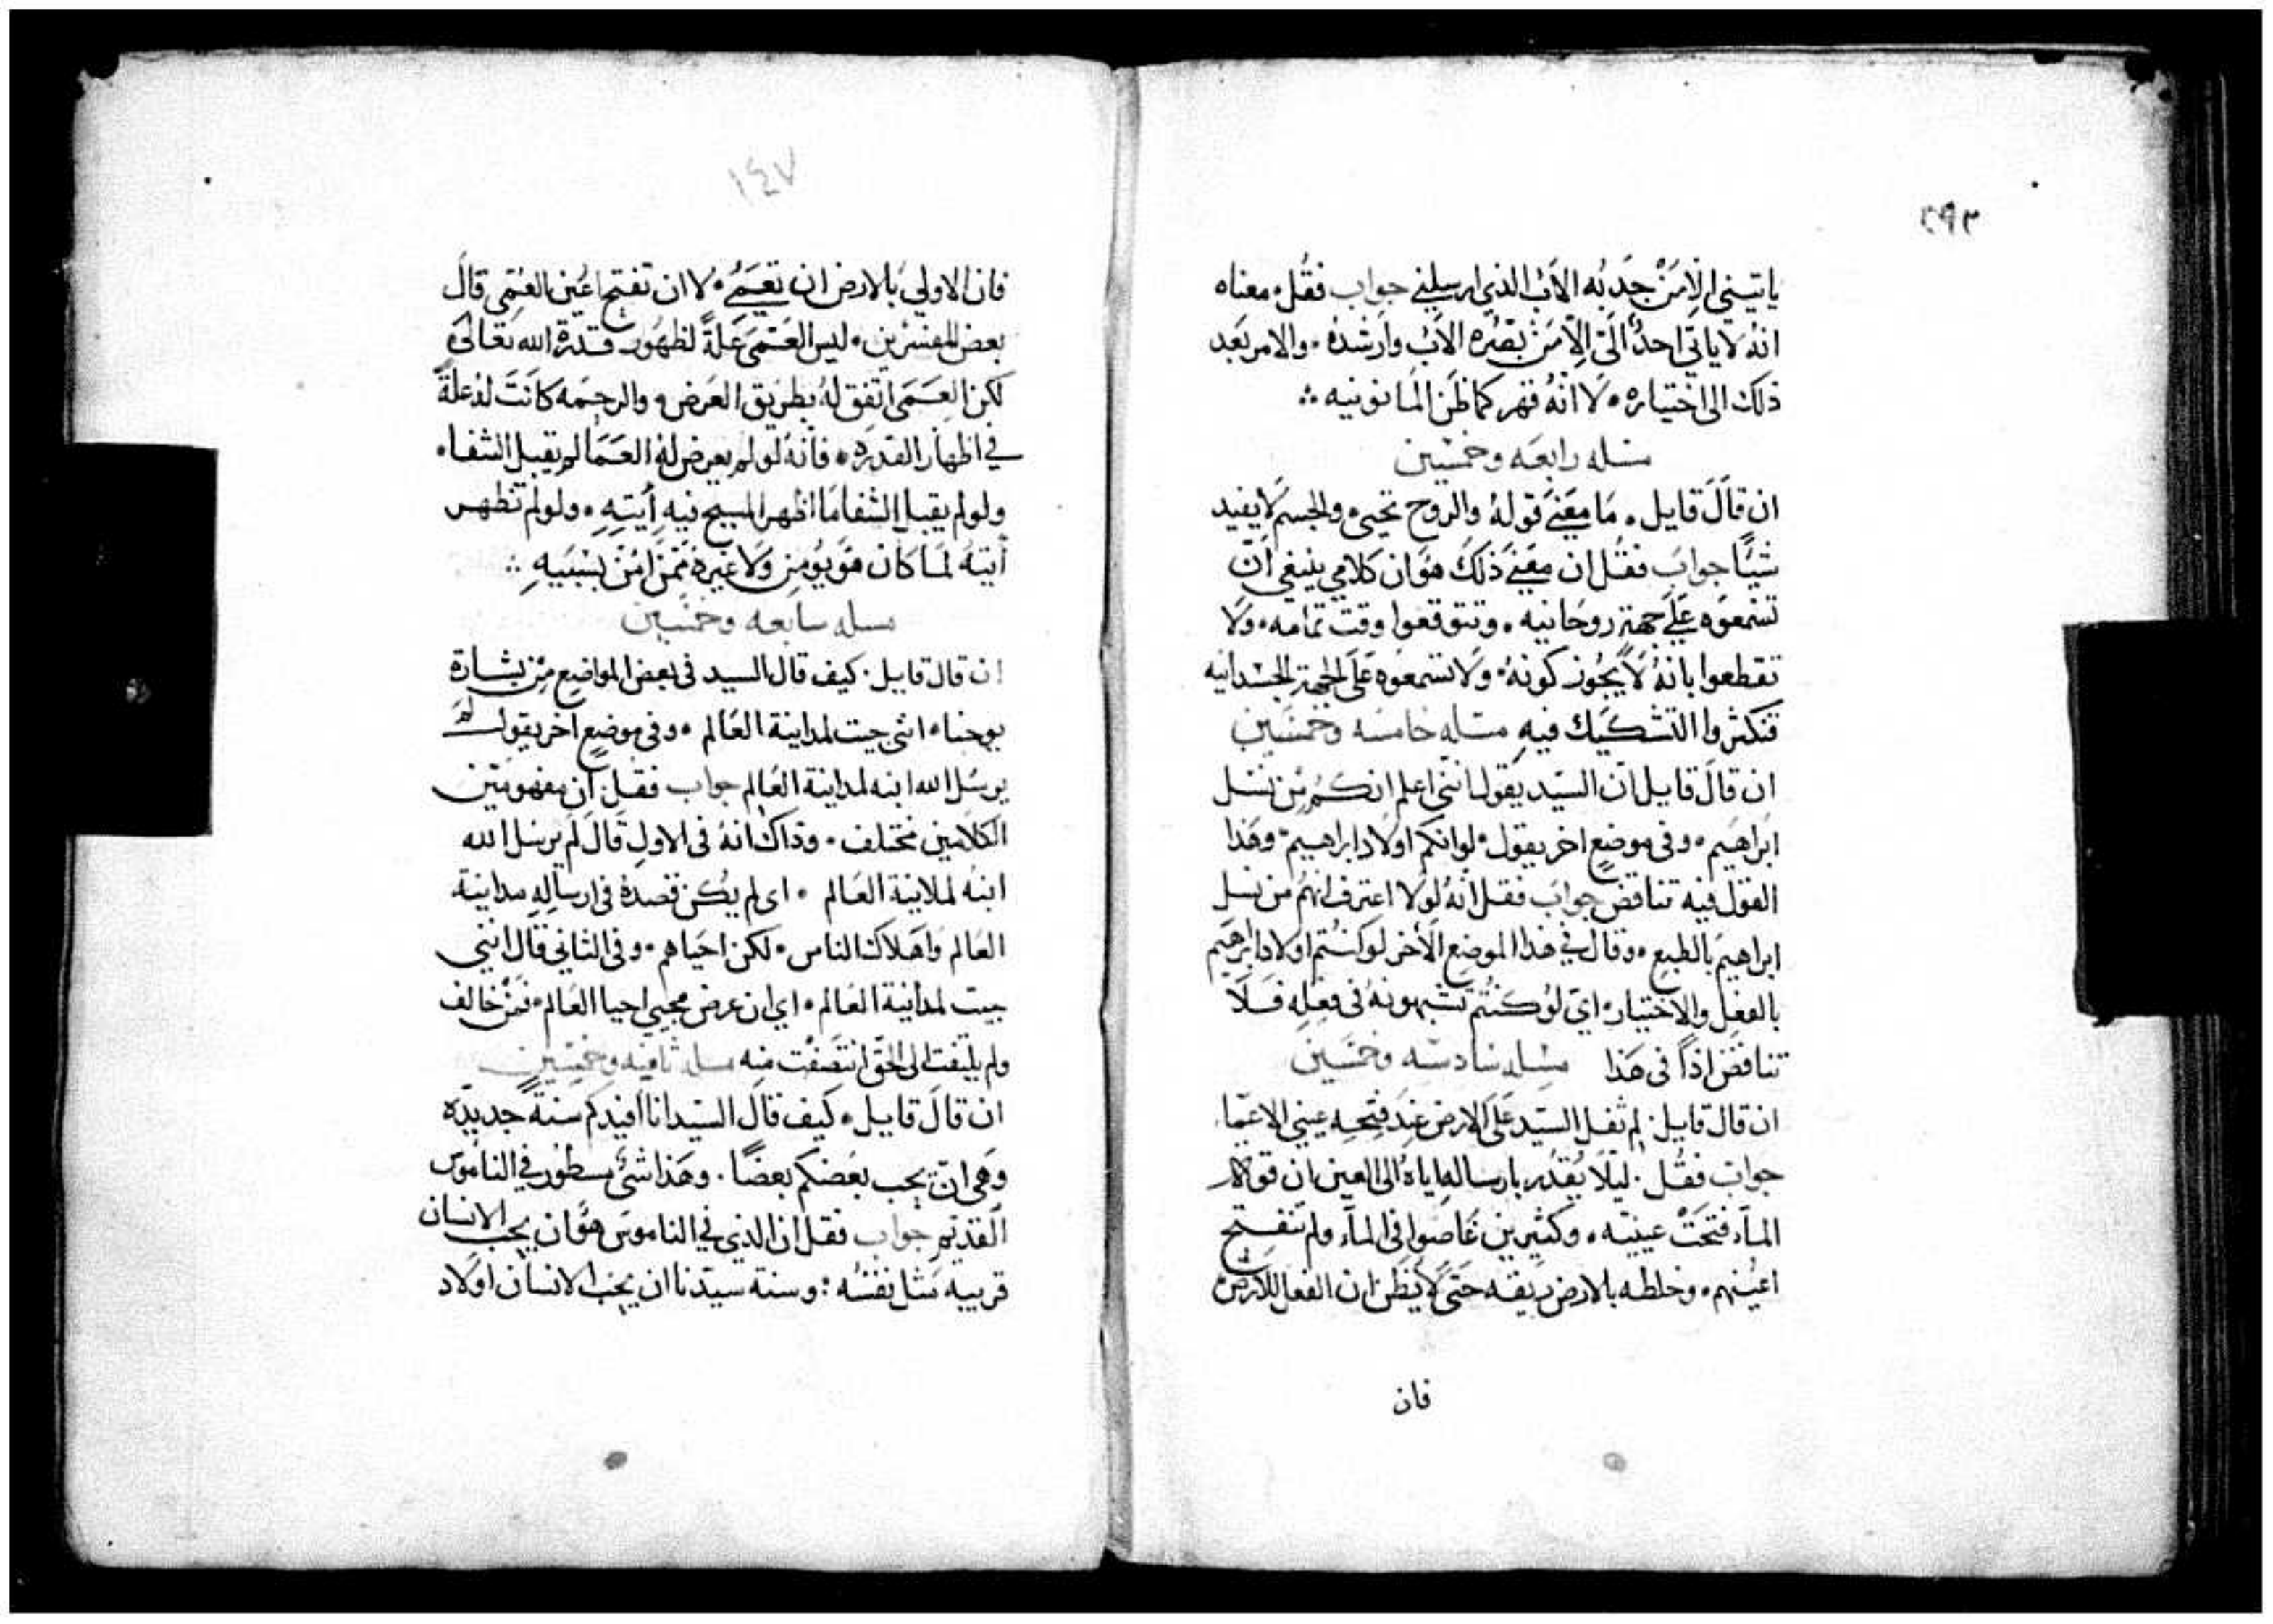 ٢٩٢
ياتيني الا من جذبه الاب الذي ارسلني جواب فقل معناه
انه لا ياتي احد الي الا من بصره الاب وارشده والامر بعد
ذلك الى اختياره لا انه قهر كما ظن المانونيه
مسله رابعه وخمسين
ان قال قايل ما معني قوله والروح تحيي والجسم لا يفيد
شيا جواب فقل ان معني ذلك هو ان كلامي ينبغي ان
تسمعوه علي جهة روحانيه وتتوقعوا وقت تمامه ولا
تقطعوا بانه لا يجوز كونه ولا تسمعوه على الجهة الجسدانيه
فتكثروا التشكيك فيه مسله خامسه وخمسين
ان قال قايل ان السيد يقول انني اعلم انكم من نسل
ابراهيم وفي موضع اخر يقول لو انكم اولاد ابراهيم وهذا
القول فيه تناقض جواب فقل انه لولا اعترف انهم من نسل
ابراهيم بالطبع وقال في هذا الموضع الاخر لو كنتم اولاد ابراهيم
بالفعل والاختيار اي لو كنتم تشبهونه في فعله فلا
تناقض اذا في هذا مسله سادسه وخمسين
ان قال قايل لم تفل السيد على الارض عند فتحه عيني الاعما
جواب فقل ليلا يقدر بارساله اياه الى العين ان قولا
المآء فتحت عينيه وكثيرين غاصوا في المآء ولم تنفتح
اعينهم وخلطه بالارض ريقه حتى لا يظن ان الفعل للارض
فان
١٤٧
فان الاولي بالارض ان تعمي لا ان تفتح اعين العمي قال
بعض المفسرين ليس العمى علة لظهور قدرة الله تعالى
لكن العمى اتفق له بطريق العرض والرحمه كانت له علة
في اظهار القدره فانه لو لم يعرض له العما لم يقبل الشفا
ولو لم يقبل الشفا ما اظهر المسيح فيه ايته ولو لم تظهر
ايته لما كان هو يومن ولا غيره ممن امن بسببه
مسله سابعه وخمسين
ان قال قايل كيف قال السيد في بعض المواضع من بشارة
يوحنا انني جيت لمداينة العالم وفي موضع اخر يقول لم
يرسل الله ابنه لمداينة العالم جواب فقل ان مفهومتين
الكلامين مختلف وذاك انه في الاول قال لم يرسل الله
ابنه لمداينة العالم اى لم يكن قصده في ارساله مداينة
العالم واهلاك الناس لكن احياهم وفي الثاني قال انني
جيت لمداينة العالم اي ان عرض مجيي احيا العالم فمن خالف
ولم يلتفت الى الحق انتصفت منه مسله ثامنه وخمسين
ان قال قايل كيف قال السيد انا افيدكم سنة جديده
وهي ان يحب بعضكم بعضا وهذا شئ مسطور في الناموس
القديم جواب فقل ان الذي في الناموس هو ان يحب الانسان
قريبه مثل نفسه وسنة سيدنا ان يحب الانسان اولاد